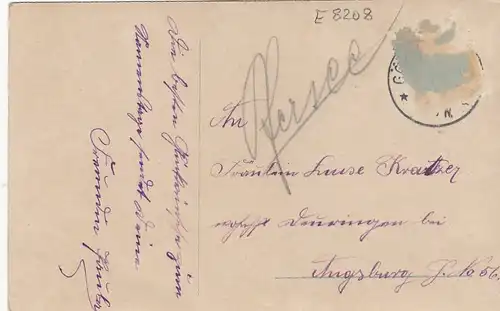 E 8208
Die besten Glückwünsche zum
Namenstage sendet Deine
Freundin
Pfersee
An
Fräulein Luise Kratzer
Deuringen bei
Augsburg H. No 66.